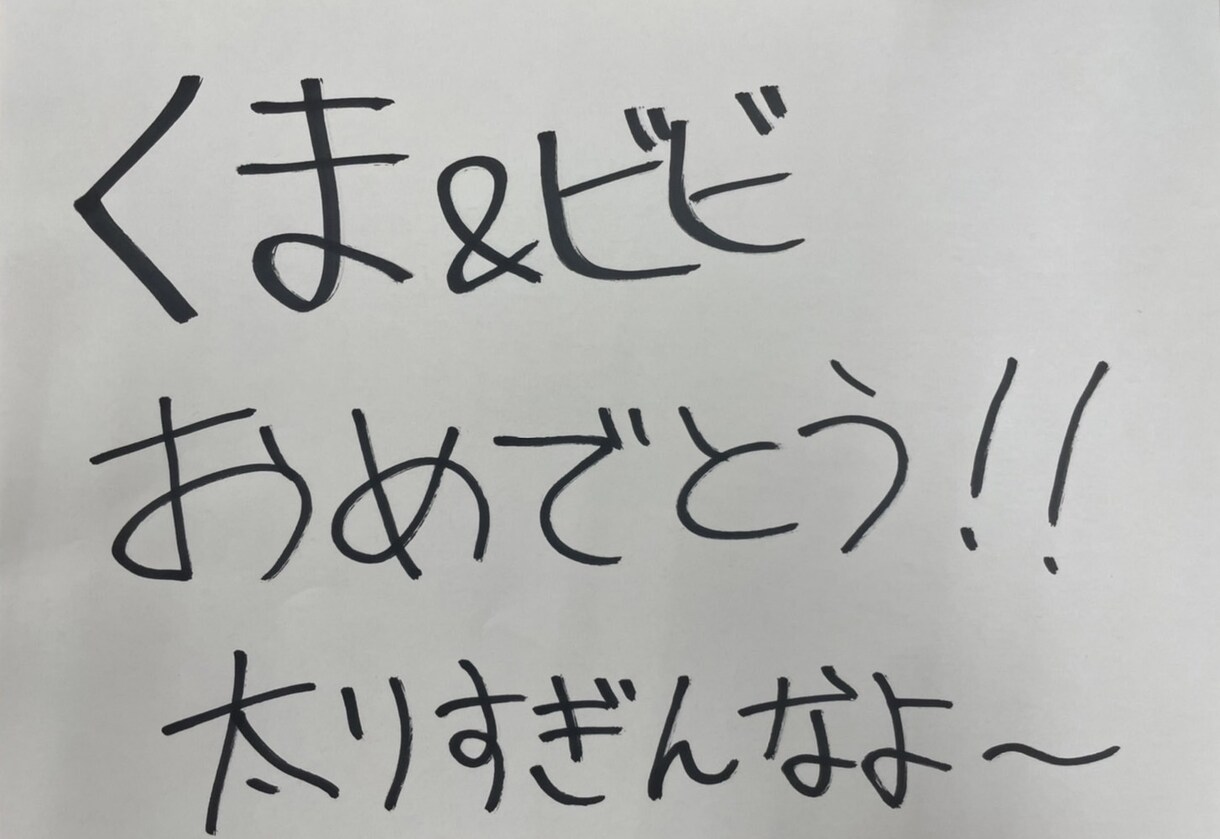 くま&ビビ
おめでとう!!
太りすぎんなよ〜